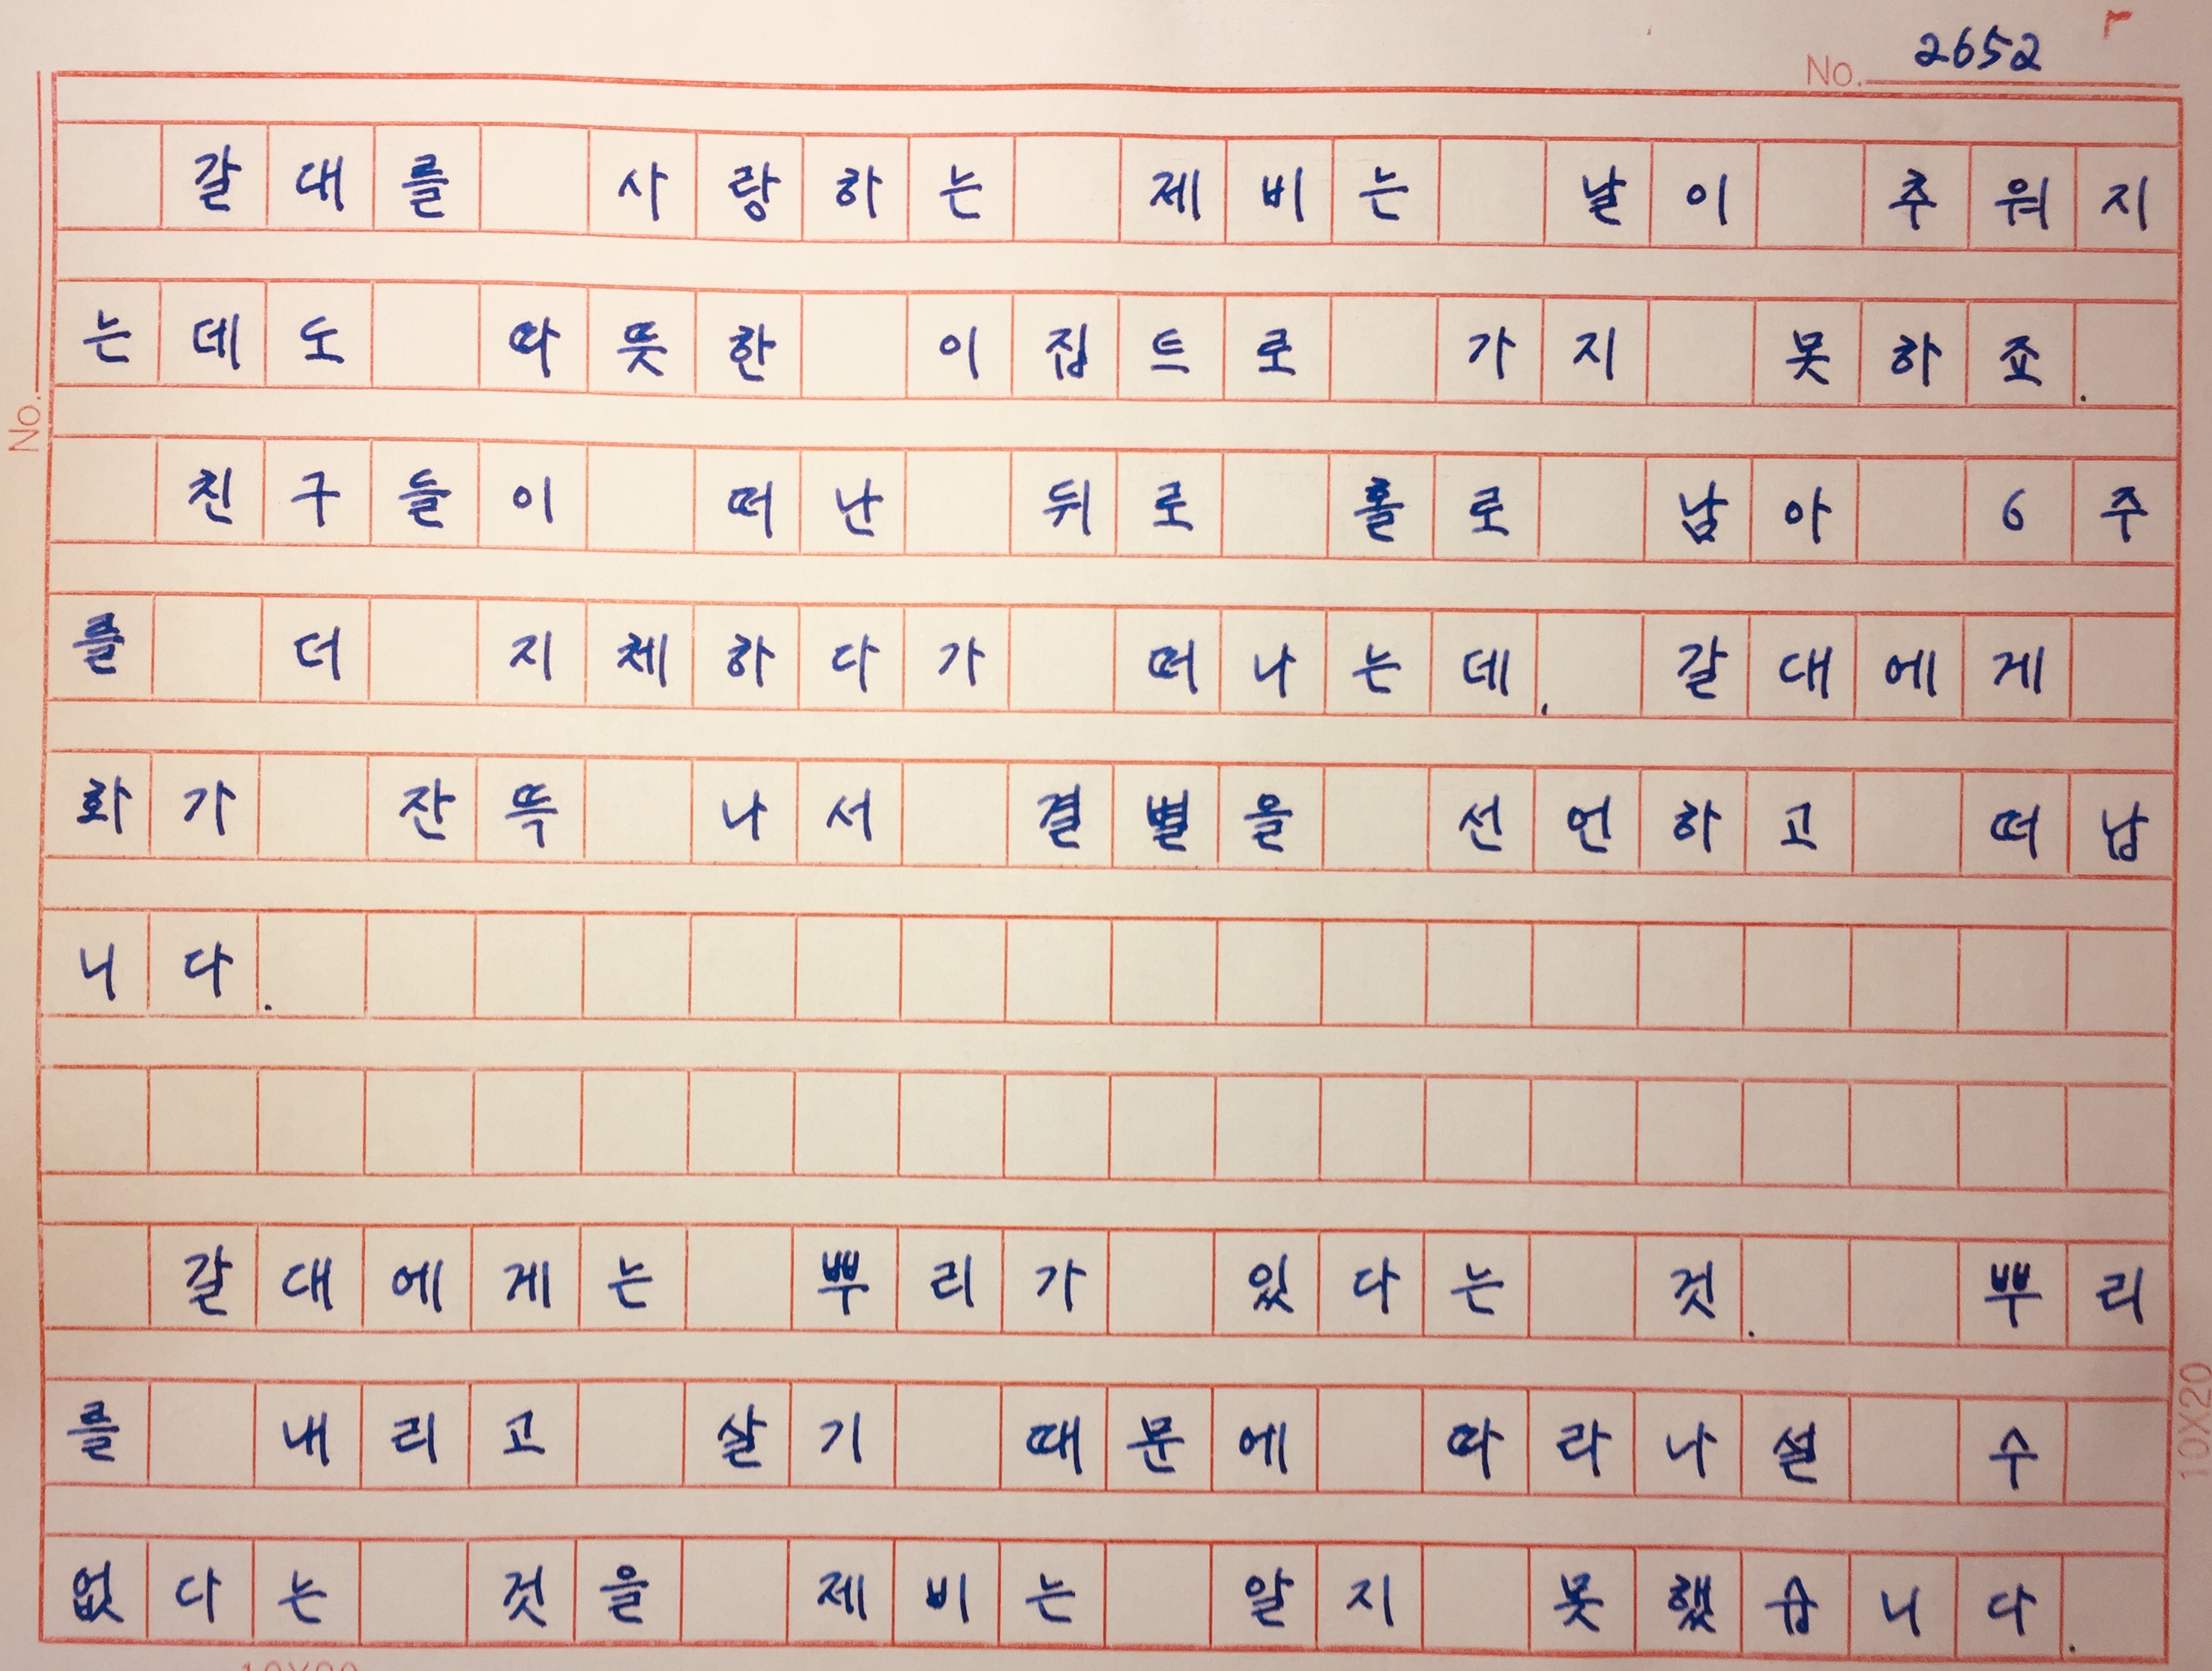 No. 2652
갈대를 사랑하는 제비는 날이 추워지
는데도 따뜻한 이집트로 가지 못하죠.
친구들이 떠난 뒤로 홀로 남아 6주
를 더 지체하다가 떠나는데, 갈대에게
화가 잔뜩 나서 결별을 선언하고 떠납
니다.
No.
갈대에게는 뿌리가 있다는 것. 뿌리
를 내리고 살기 때문에 따라나설 수
없다는 것을 제비는 알지 못했습니다.
10X20